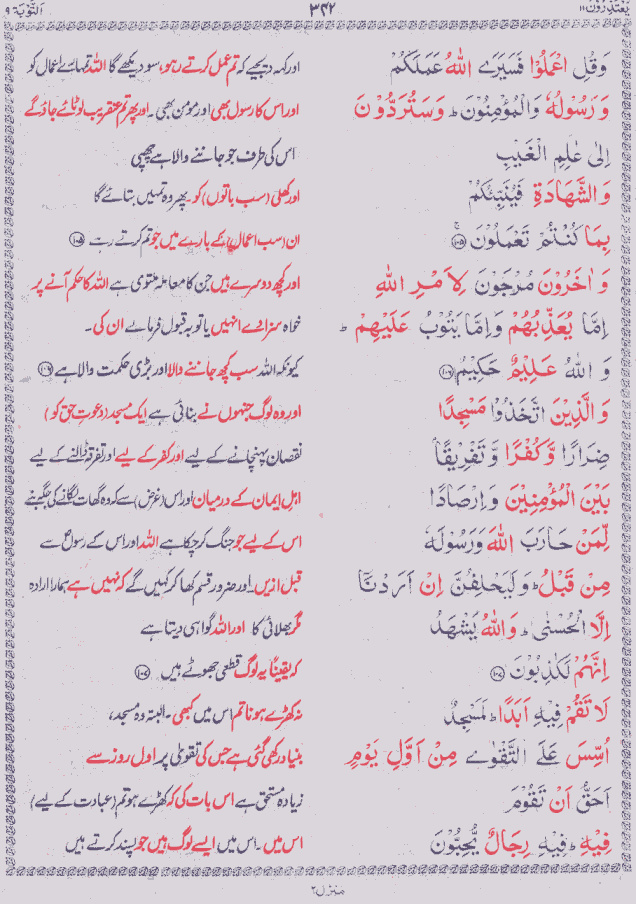 يَعْتَذِرُونَ ١١
٣٤٢
اَلتَّوْبَة ٩
وَقُلِ اعْمَلُوْا فَسَيَرَى اللهُ عَمَلَكُمْ
اور کہہ دیجیے کہ تم عمل کرتے رہو، سو دیکھے گا اللہ تمہارے اعمال کو
وَرَسُوْلُهٗ وَالْمُؤْمِنُوْنَ ؕ وَسَتُرَدُّوْنَ
اور اس کا رسول بھی اور مومن بھی۔ اور پھر تم عنقریب لوٹائے جاؤ گے
اِلٰى عٰلِمِ الْغَيْبِ
اس کی طرف جو جاننے والا ہے چھپی
وَالشَّهَادَةِ فَيُنَبِّئُكُمْ
اور کھلی (سب باتوں) کو۔ پھر وہ تمہیں بتائے گا
بِمَا كُنْتُمْ تَعْمَلُوْنَ ﴿١٠٥﴾
ان (سب اعمال) کے بارے میں جو تم کرتے رہے ﴿١٠٥﴾
وَاٰخَرُوْنَ مُرْجَوْنَ لِاَمْرِ اللهِ
اور کچھ دوسرے ہیں جن کا معاملہ ملتوی ہے اللہ کا حکم آنے پر
اِمَّا يُعَذِّبُهُمْ وَاِمَّا يَتُوْبُ عَلَيْهِمْ ؕ
خواہ سزا دے انہیں یا توبہ قبول فرمالے ان کی۔
وَاللهُ عَلِيْمٌ حَكِيْمٌ ﴿١٠٦﴾
کیونکہ اللہ سب کچھ جاننے والا اور بڑی حکمت والا ہے ﴿١٠٦﴾
وَالَّذِيْنَ اتَّخَذُوْا مَسْجِدًا
اور وہ لوگ جنہوں نے بنائی ہے ایک مسجد (دعوتِ حق کو)
ضِرَارًا وَّكُفْرًا وَّتَفْرِيْقًاۢ
نقصان پہنچانے کے لیے اور کفر کے لیے اور تفرقہ ڈالنے کے لیے
بَيْنَ الْمُؤْمِنِيْنَ وَاِرْصَادًا
اہلِ ایمان کے درمیان اور اس (غرض) سے کہ وہ گھات لگانے کی جگہ بنے
لِّمَنْ حَارَبَ اللهَ وَرَسُوْلَهٗ
اس کے لیے جو جنگ کر چکا ہے اللہ اور اس کے رسول سے
مِنْ قَبْلُ ؕ وَلَيَحْلِفُنَّ اِنْ اَرَدْنَاۤ
قبل ازیں۔ اور ضرور قسم کھا کر کہیں گے کہ نہیں ہے ہمارا ارادہ
اِلَّا الْحُسْنٰى ؕ وَاللهُ يَشْهَدُ
مگر بھلائی کا اور اللہ گواہی دیتا ہے
اِنَّهُمْ لَكٰذِبُوْنَ ﴿١٠٧﴾
کہ یقیناً یہ لوگ قطعی جھوٹے ہیں ﴿١٠٧﴾
لَا تَقُمْ فِيْهِ اَبَدًا ؕ لَمَسْجِدٌ
نہ کھڑے ہونا تم اس میں کبھی۔ البتہ وہ مسجد،
اُسِّسَ عَلَى التَّقْوٰى مِنْ اَوَّلِ يَوْمٍ
بنیاد رکھی گئی ہے جس کی تقویٰ پر اول روز سے
اَحَقُّ اَنْ تَقُوْمَ
زیادہ مستحق ہے اس بات کی کہ کھڑے ہو تم (عبادت کے لیے)
فِيْهِ ؕ فِيْهِ رِجَالٌ يُّحِبُّوْنَ
اس میں۔ اس میں ایسے لوگ ہیں جو پسند کرتے ہیں
منزل ٢